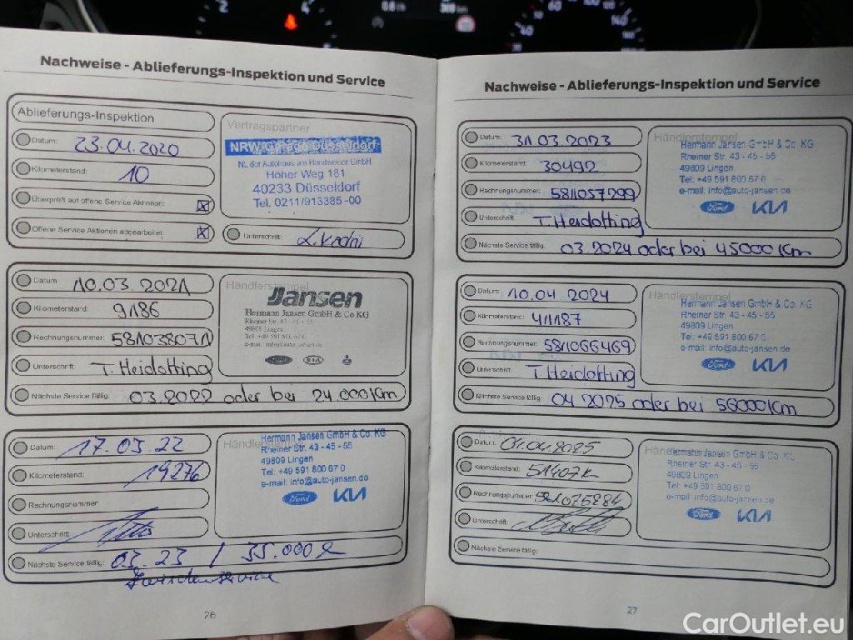 Nachweise - Ablieferungs-Inspektion und Service
Ablieferungs-Inspektion
Datum: 23.04.2020
Kilometerstand: 10
Überprüft auf offene Service Aktionen:
Offene Service Aktionen abgearbeitet:
Vertragspartner
NRW Garage Düsseldorf
Höher Weg 181
40233 Düsseldorf
Tel. 0211/913385-00
Unterschrift:
Datum: 10.03.2021
Kilometerstand: 9186
Rechnungsnummer: 581038071
Unterschrift: T. Heidotting
Nächste Service fällig: 03.2022 oder bei 24.000 Km
Händlerstempel
Jansen
Hermann Jansen GmbH & Co KG
Rheiner Str. 43 - 45 - 55
49809 Lingen
Datum: 17.03.22
Kilometerstand: 19276
Rechnungsnummer:
Unterschrift:
Nächste Service fällig: 03.23 / 35.000
Zwischenservice
Hermann Jansen GmbH & Co. KG
Rheiner Str. 43 - 45 - 55
49809 Lingen
Tel. +49 591 800 67 0
e-mail: info@auto-jansen.de
Ford KIA
26
Nachweise - Ablieferungs-Inspektion und Service
Datum: 31.03.2023
Kilometerstand: 30492
Rechnungsnummer: 581057299
Unterschrift: T. Heidotting
Nächste Service fällig: 03.2024 oder bei 45000 Km
Händlerstempel
Hermann Jansen GmbH & Co. KG
Rheiner Str. 43 - 45 - 55
49809 Lingen
Tel. +49 591 800 67 0
e-mail: info@auto-jansen.de
Ford KIA
Datum: 10.04.2024
Kilometerstand: 41187
Rechnungsnummer: 581066469
Unterschrift: T Heidotting
Nächste Service fällig: 04.2025 oder bei 56000 Km
Händlerstempel
Hermann Jansen GmbH & Co. KG
Rheiner Str. 43 - 45 - 55
49809 Lingen
Tel. +49 591 800 67 0
e-mail: info@auto-jansen.de
Ford KIA
Datum: 01.04.2025
Kilometerstand: 51407
Rechnungsnummer: 581075884
Unterschrift:
Nächste Service fällig:
Hermann Jansen GmbH & Co. KG
Rheiner Str. 43 - 45 - 55
49809 Lingen
Tel. +49 591 800 67 0
e-mail: info@auto-jansen.de
Ford KIA
27
CarOutlet.eu